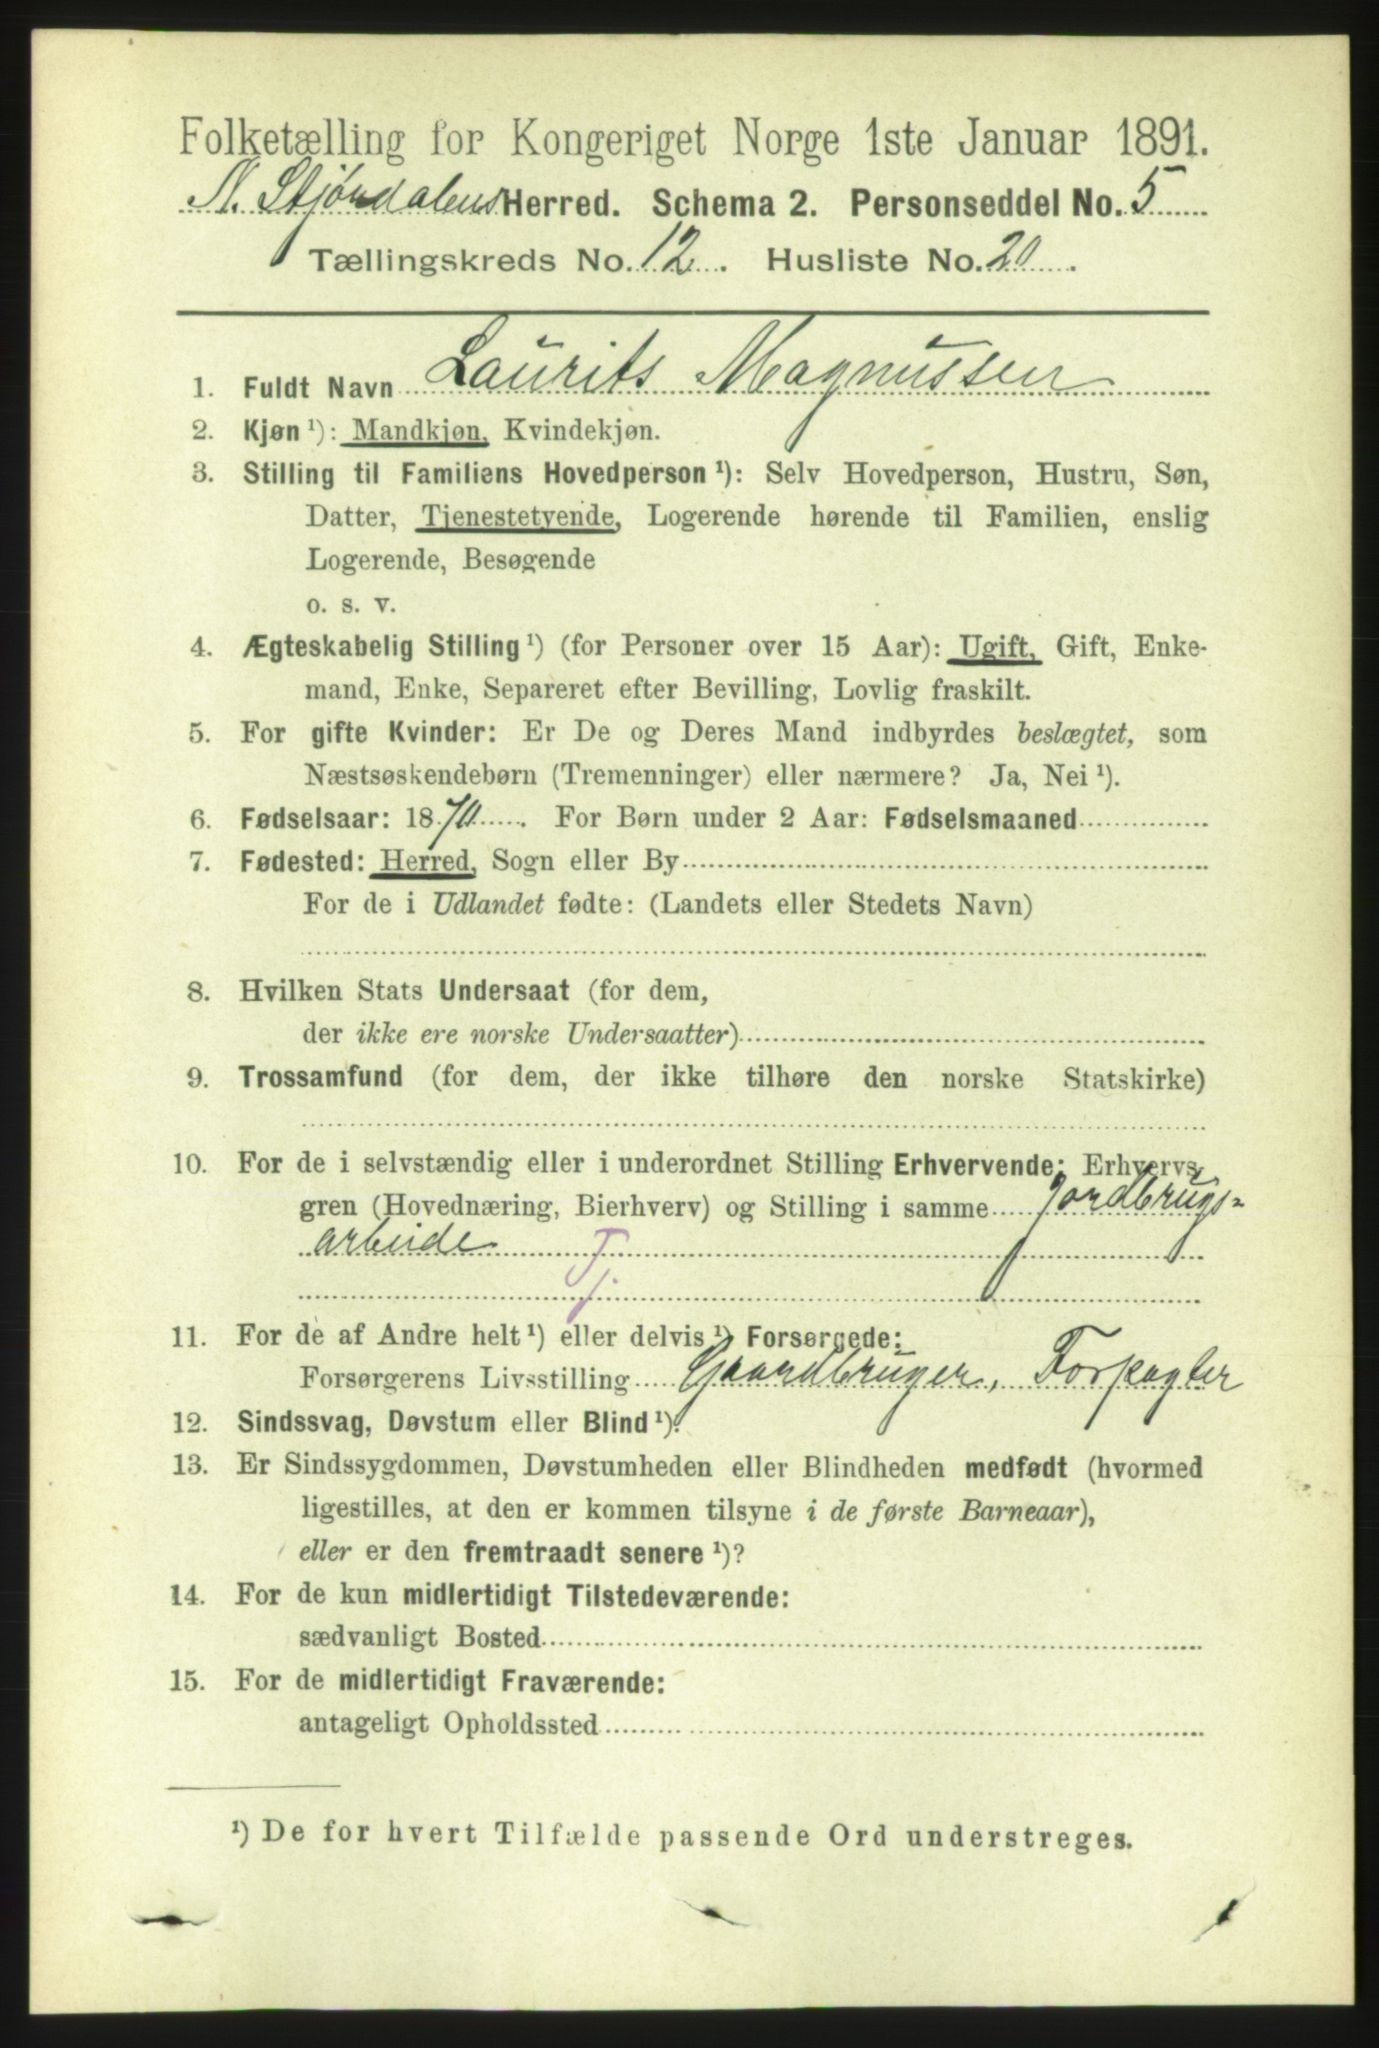 Folketælling for Kongeriget Norge 1ste Januar 1891.
N. Stjørdalens Herred. Schema 2. Personseddel No. 5
Tællingskreds No. 12. Husliste No. 20.
1. Fuldt Navn Laurits Magnussen
2. Kjøn ¹): Mandkjøn, Kvindekjøn.
3. Stilling til Familiens Hovedperson ¹): Selv Hovedperson, Hustru, Søn,
Datter, Tjenestetyende, Logerende hørende til Familien, enslig
Logerende, Besøgende
o. s. v.
4. Ægteskabelig Stilling ¹) (for Personer over 15 Aar): Ugift, Gift, Enke-
mand, Enke, Separeret efter Bevilling, Lovlig fraskilt.
5. For gifte Kvinder: Er De og Deres Mand indbyrdes beslægtet, som
Næstsøskendebørn (Tremenninger) eller nærmere? Ja, Nei ¹).
6. Fødselsaar: 1870. For Børn under 2 Aar: Fødselsmaaned
7. Fødested: Herred, Sogn eller By
For de i Udlandet fødte: (Landets eller Stedets Navn)
8. Hvilken Stats Undersaat (for dem,
der ikke ere norske Undersaatter)
9. Trossamfund (for dem, der ikke tilhøre den norske Statskirke)
10. For de i selvstændig eller i underordnet Stilling Erhvervende: Erhvervs-
gren (Hovednæring, Bierhverv) og Stilling i samme Jordbrugs=
arbeide
Tj.
11. For de af Andre helt ¹) eller delvis ¹) Forsørgede:
Forsørgerens Livsstilling Gaardbruger, Forpagter
12. Sindssvag, Døvstum eller Blind ¹).
13. Er Sindssygdommen, Døvstumheden eller Blindheden medfødt (hvormed
ligestilles, at den er kommen tilsyne i de første Barneaar),
eller er den fremtraadt senere ¹)?
14. For de kun midlertidigt Tilstedeværende:
sædvanligt Bosted
15. For de midlertidigt Fraværende:
antageligt Opholdssted
¹) De for hvert Tilfælde passende Ord understreges.